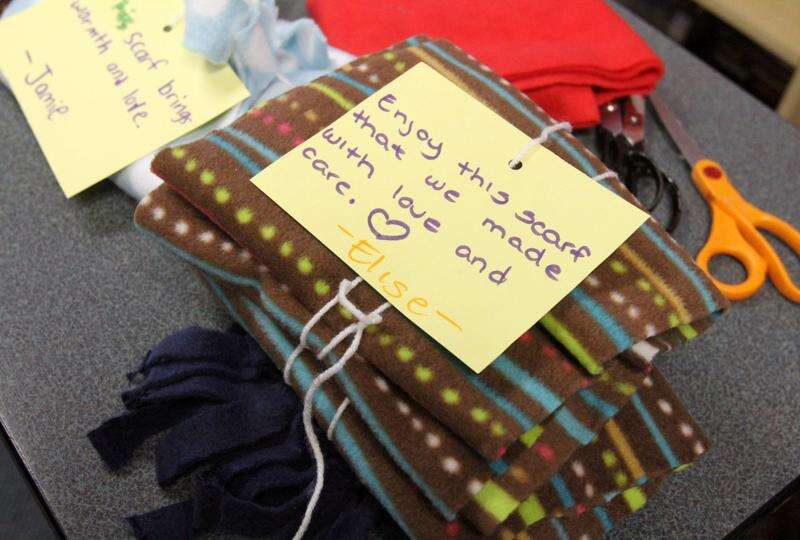 Enjoy this scarf
that we made
with love and
care. ♡
-Elise-
scarf brings
warmth and love.
-Jamie